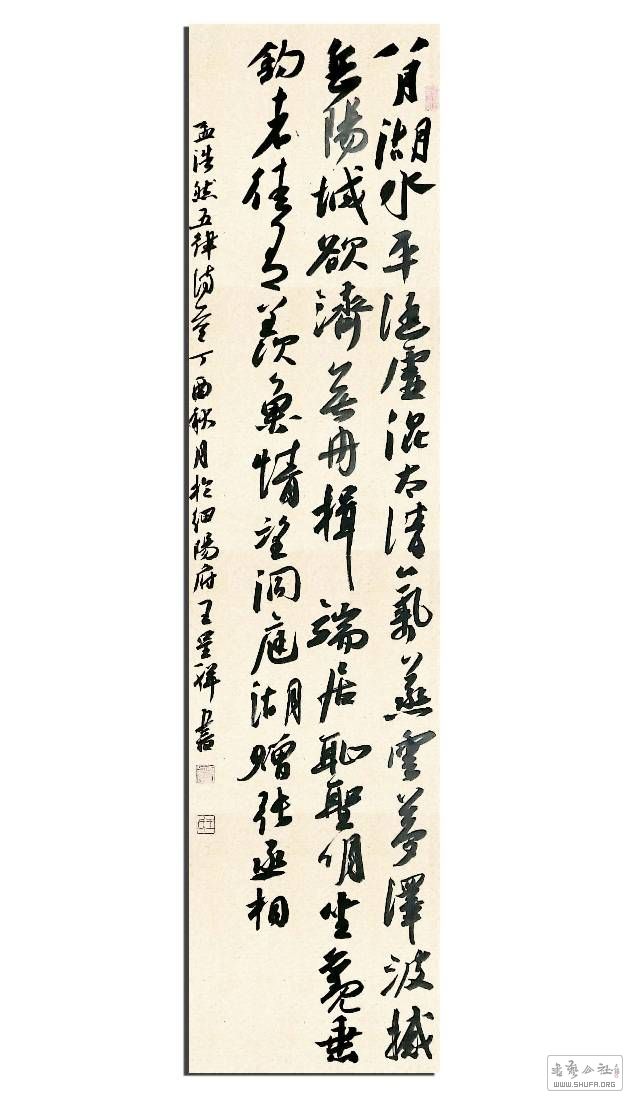 八月湖水平涵虛混太清氣蒸雲夢澤波撼
岳陽城欲濟無舟楫端居恥聖明坐觀垂
釣者徒有羨魚情望洞庭湖贈張丞相
孟浩然五律詩丁酉秋月於細陽府王呈祥書
書藝公社
WWW.SHUFA.ORG